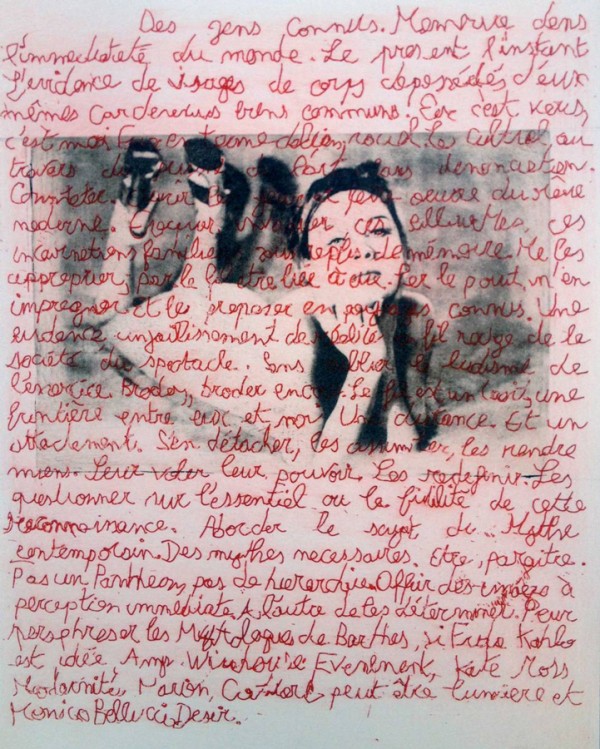 Des gens connus. M'émouvoir dans
l'immédiateté du monde. Le present l'instant
L'évidence de visages de corps dépossédés d'eux
mêmes devenus biens communs. Eux c'est vous,
c'est moi social. Le Culturel au
travers du de l'art sans dénonciation.
Constater. faire oeuvre du rêve
moderne. ces
incarnations familières replis de mémoire. Me les
approprier, par le fil être liée à eux. Par le point, m'en
imprégner et le proposer en connus. Une
évidence un jaillissement de fil rouge de la
société du spectacle. Sans oublier le ludisme de
l'énergie. Broder, broder encore. Le fil est un trait, une
frontière entre eux et moi. Une distance. Et un
attachement. S'en détacher, les assimiler, les rendre
miens. Leur voler leur pouvoir. Les redéfinir. Les
questionner sur l'essentiel ou la futilité de cette
reconnaissance. Aborder le sujet du Mythe
contemporain. Des mythes necessaires. Etre, paraitre.
Pas un Panthéon, pas de hierarchie. Offrir des images à
perception immédiate. A l'autre de les déterminer. Pour
paraphraser les Mythologies de Barthes, si Frida Kahlo
est idée, Amy Winehouse Evenement, Kate Moss
Modernité, Marion Cotillard peut être lumière et
Monica Bellucci Desir.